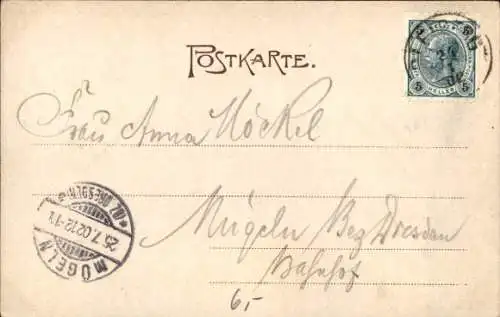 POSTKARTE.
5 HELLER 5
Frau Anna Möckel
Mügeln Bez Dresden
Bahnhof
6,-
MÜGELN
(BZ. DRESDEN)
25.7.02.12-1N